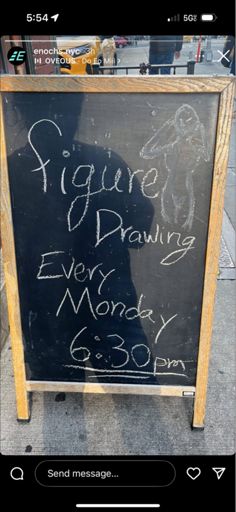 5:54
5G
enochs_nyc 3h
OVEOUS · Do Ep Mili >
Figure
Drawing
Every
Monday
6:30pm
Send message...